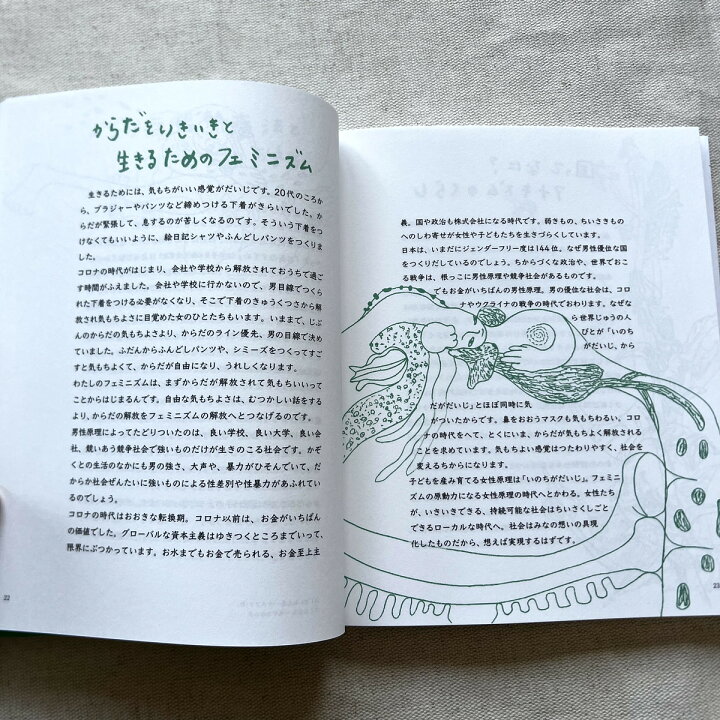 からだをいきいきと
生きるためのフェミニズム
生きるためには、気もちがいい感覚がだいじです。20代のころか
ら、ブラジャーやパンツなど締めつける下着がきらいでした。か
らだが緊張して、息するのが苦しくなるのです。そういう下着をつ
けなくてもいいように、絵日記シャツやふんどしパンツをつくりま
した。
コロナの時代がはじまり、会社や学校から解放されておうちで過ご
す時間がふえました。会社や学校に行かないので、男目線でつくら
れた下着をつける必要がなくなり、そこで下着のきゅうくつさから解
放され気もちよさに目覚めた女のひとたちもいます。いままで、じぶ
んのからだの気もちよさより、からだのライン優先、男の目線で決め
ていました。ふだんからふんどしパンツや、シミーズをつくってすご
すと気もちよくて、からだが自由になり、うれしくなります。
わたしのフェミニズムは、まずからだが解放されて気もちいいって
ことからはじまるんです。自由な気もちよさは、むつかしい話をする
より、からの解放をフェミニズムの解放へとつなげるのです。
男性原理によってたどりついたのは、良い学校、良い大学、良い会
社、競いあう競争社会で強いものだけが生きのこる社会です。かぞ
くとの生活のなかにも男の強さ、大声や、暴力がひそんでいて、だ
からか社会ぜんたいに強いものによる性差別や性暴力があふれてい
るのでしょう。
コロナの時代はおおきな転換期。コロナ以前は、お金がいちばん
の価値でした。グローバルな資本主義はゆきつくところまでいって、
限界にぶつかっています。お水までもお金で売られる、お金至上主
22
義。国や政治も株式会社になる時代です。弱きもの、ちいさきもの
へのしわ寄せが女性や子どもたちを生きづらくしています。
日本は、いまだにジェンダーフリー度は144位。なぜ男性優位な国
をつくりだしているのでしょう。ちからづくな政治や、世界でおこ
る戦争は、根っこに男性原理や競争社会があるものです。
でもお金がいちばんの男性原理。男の優位な社会は、コロ
ナやウクライナの戦争の時代でおわります。なぜなら
世界じゅうの人
びとが「いのち
がだいじ、から
だがだいじ」とほぼ同時に気
がついたからです。鼻をおおうマスクも気もちわるい、コロ
ナの時代をへて、とくにいま、からだが気もちよく解放される
ことを求めています。気もちよい感覚はつたわりやすく、社会を
変えるちからになります。
子どもを産み育てる女性原理は「いのちがだいじ」。フェミニ
ズムの原動力になる女性原理の時代へとかわる。女性たち
が、いきいきできる、持続可能な社会はちいさくしごと
できるローカルな時代へ。社会はみなの想いの具現
化したものだから、想えば実現するはずです。
23